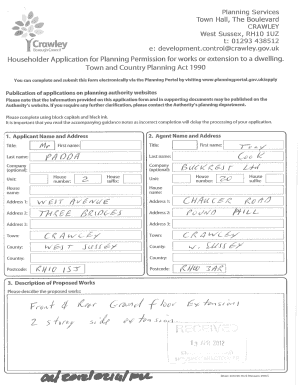 Planning Services
Town Hall, The Boulevard
CRAWLEY
West Sussex, RH10 1UZ
t: 01293 438512
e: development.control@crawley.gov.uk
Crawley
Borough Council
Householder Application for Planning Permission for works or extension to a dwelling.
Town and Country Planning Act 1990
You can complete and submit this form electronically via the Planning Portal by visiting www.planningportal.gov.uk/apply
Publication of applications on planning authority websites
Please note that the information provided on this application form and in supporting documents may be published on the
Authority's website. If you require any further clarification, please contact the Authority's planning department.
Please complete using block capitals and black ink.
It is important that you read the accompanying guidance notes as incorrect completion will delay the processing of your application.
1. Applicant Name and Address
Title: Mr First name:
Last name: PADDA
Company (optional):
Unit: House number: 2 House suffix:
House name:
Address 1: WEST AVENUE
Address 2: THREE BRIDGES
Address 3:
Town: CRAWLEY
County: WEST SUSSEX
Country:
Postcode: RH10 1ST
2. Agent Name and Address
Title: First name: Tony
Last name: Cook
Company (optional): BUCKREST Ltd
Unit: House number: 20 House suffix:
House name:
Address 1: CHAUCER ROAD
Address 2: POUND HILL
Address 3:
Town: CRAWLEY
County: W. SUSSEX
Country:
Postcode: RH10 3AR
3. Description of Proposed Works
Please describe the proposed works:
Front & Rear Ground floor Extensions
2 storey side extension
RECEIVED